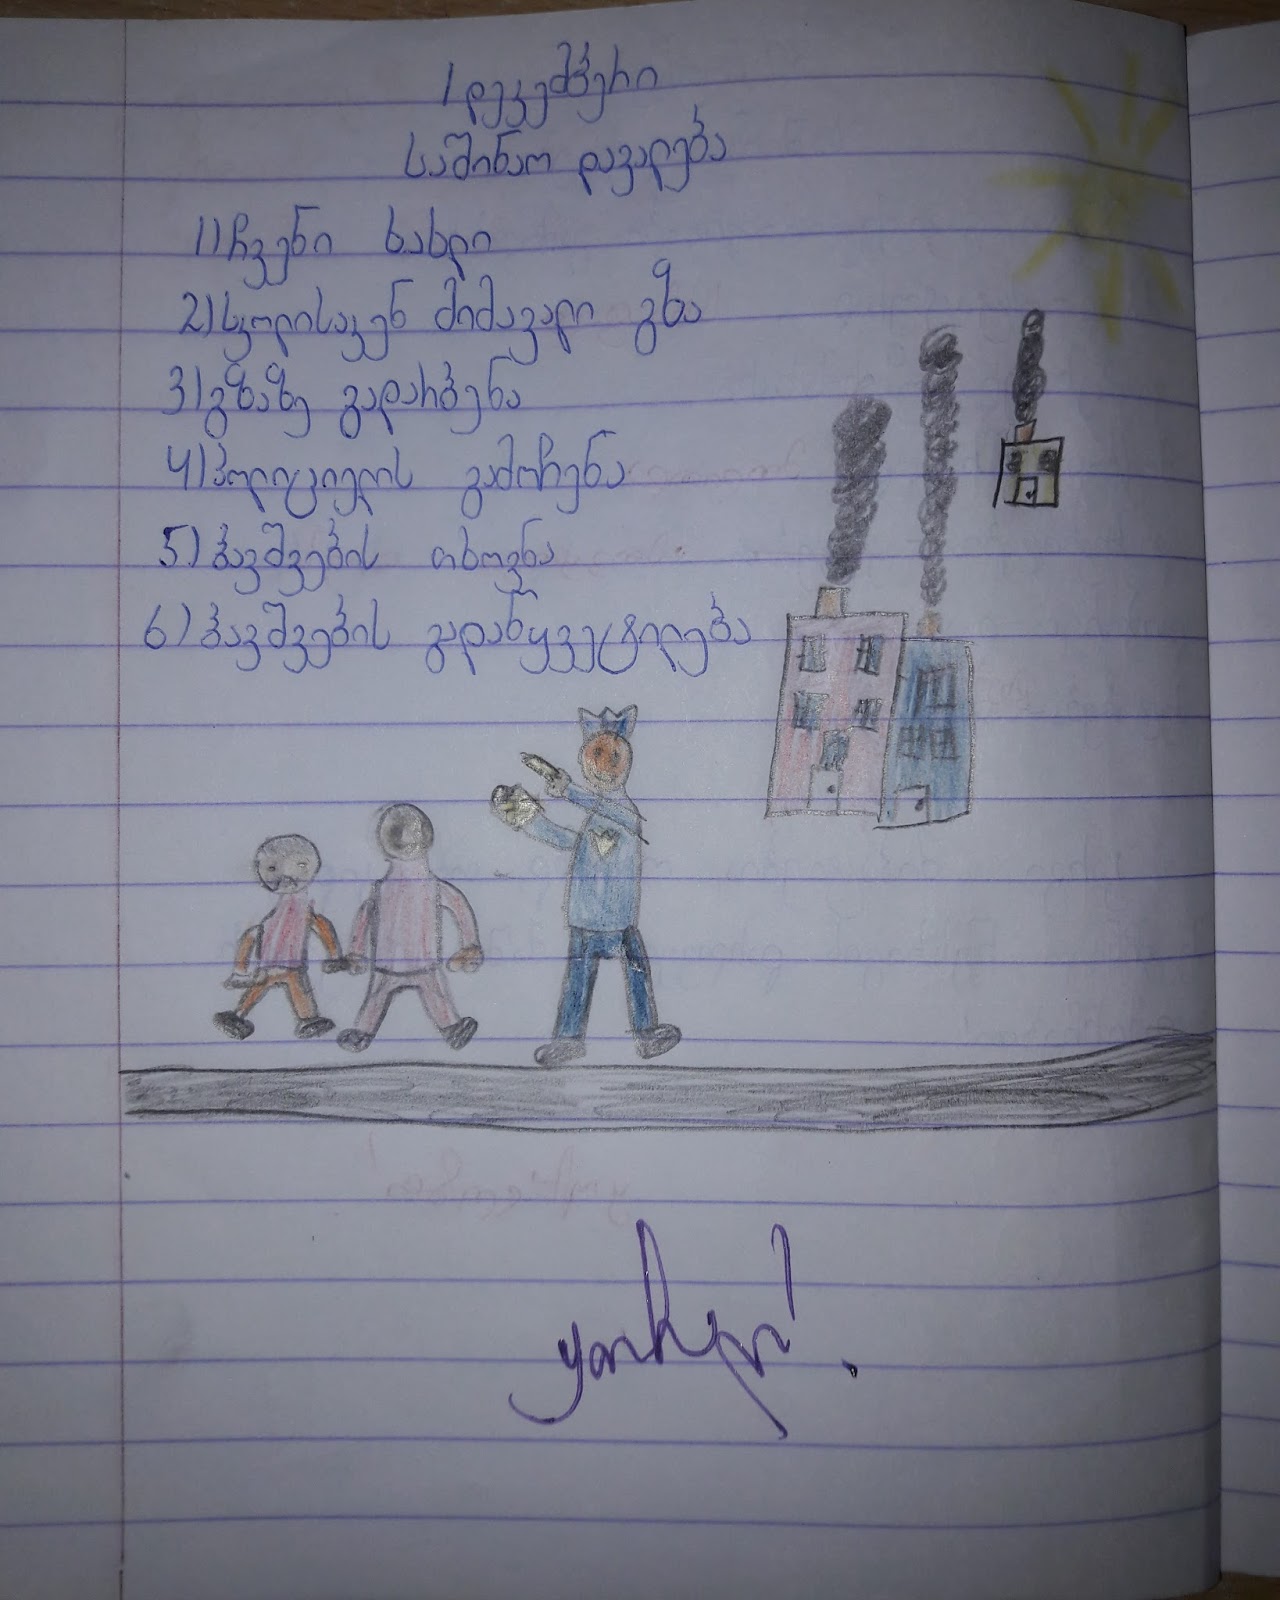 1 დეკემბერი
საშინაო დავალება
1) ჩვენი სახლი
2) სკოლისაკენ მიმავალი გზა
3) გზაზე გადარბენა
4) პოლიციელის გამოჩენა
5) ბავშვების თხოვნა
6) ბავშვების გადაწყვეტილება